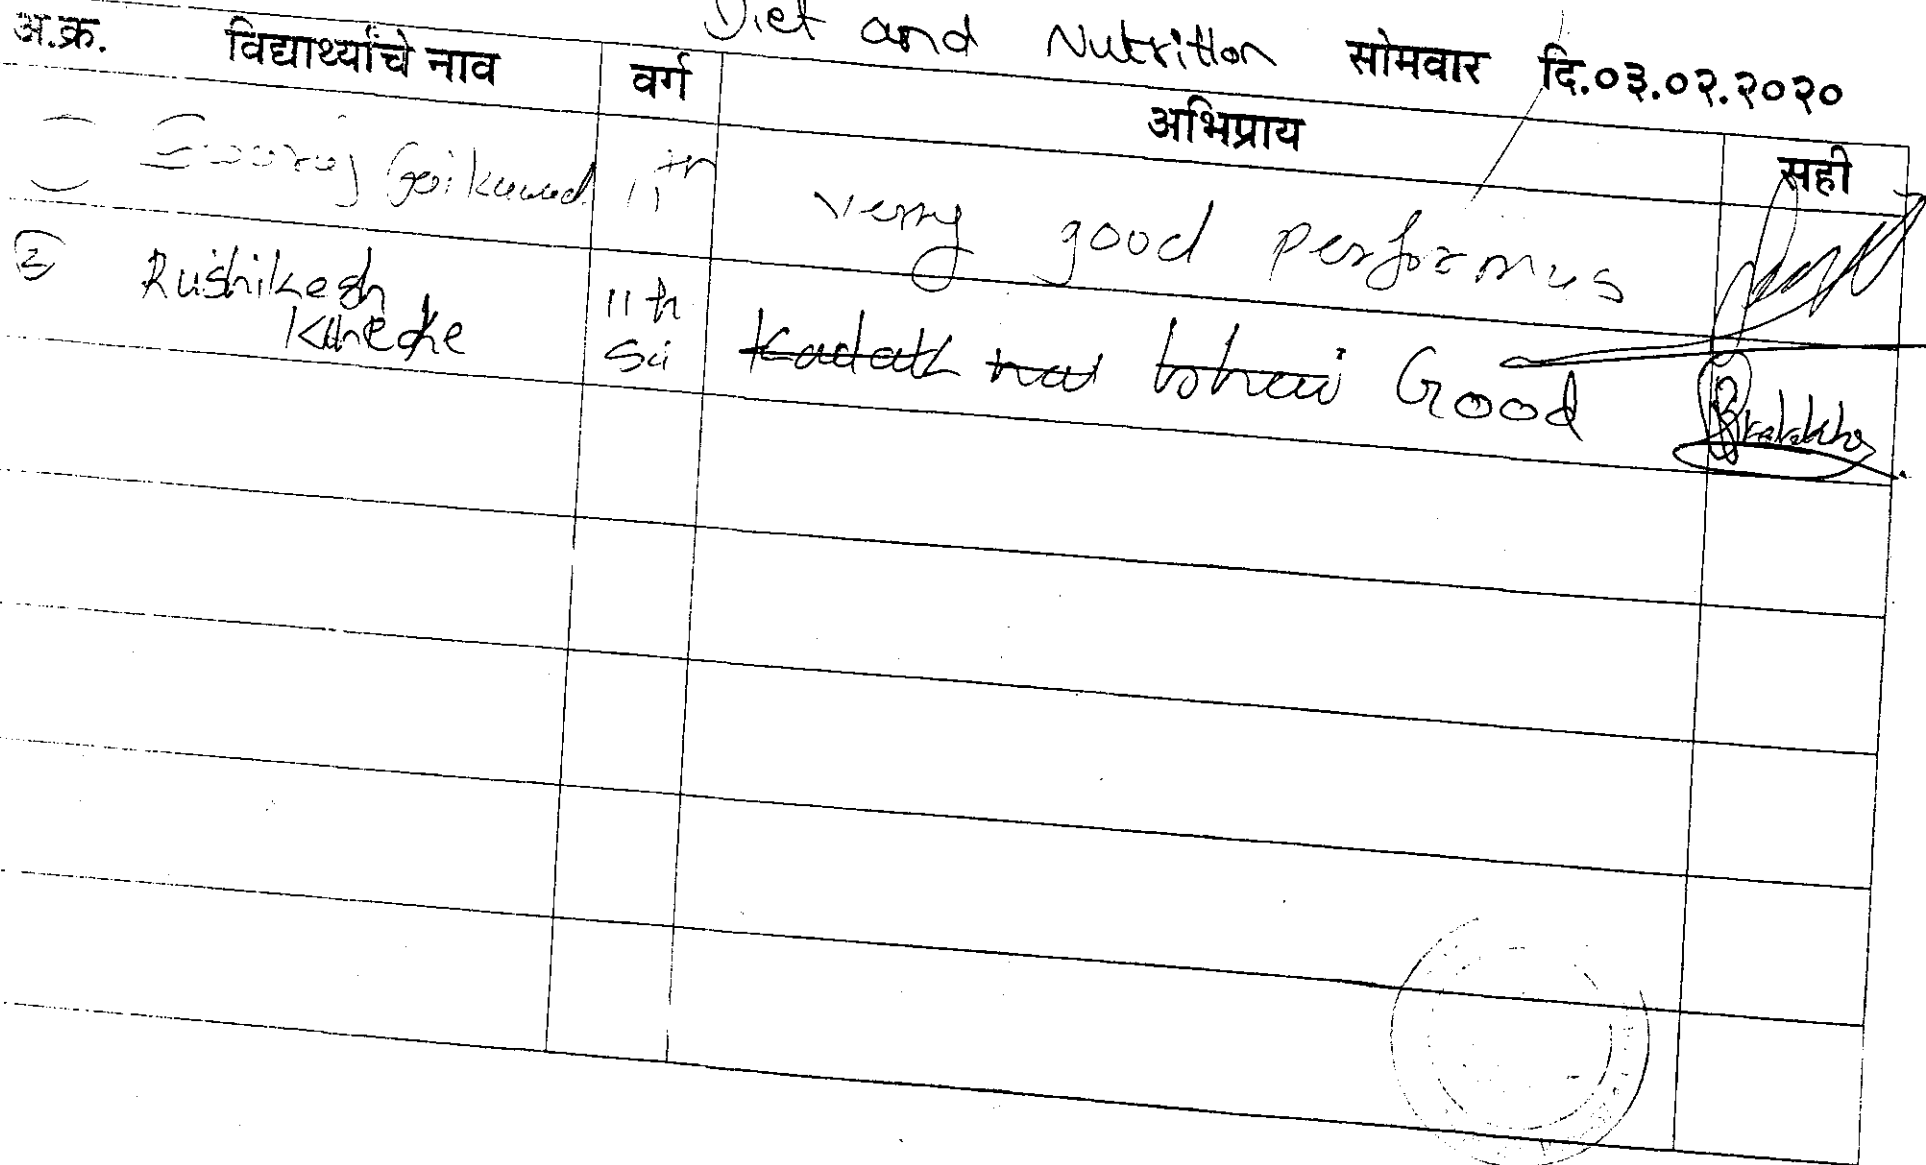 Diet and Nutrition सोमवार दि.०३.०२.२०२०
अ.क्र. विद्यार्थ्यांचे नाव वर्ग अभिप्राय सही
Gaikawad 11th verry good performus
2 Rushikesh 11th Kadak na bhai Good
Sci